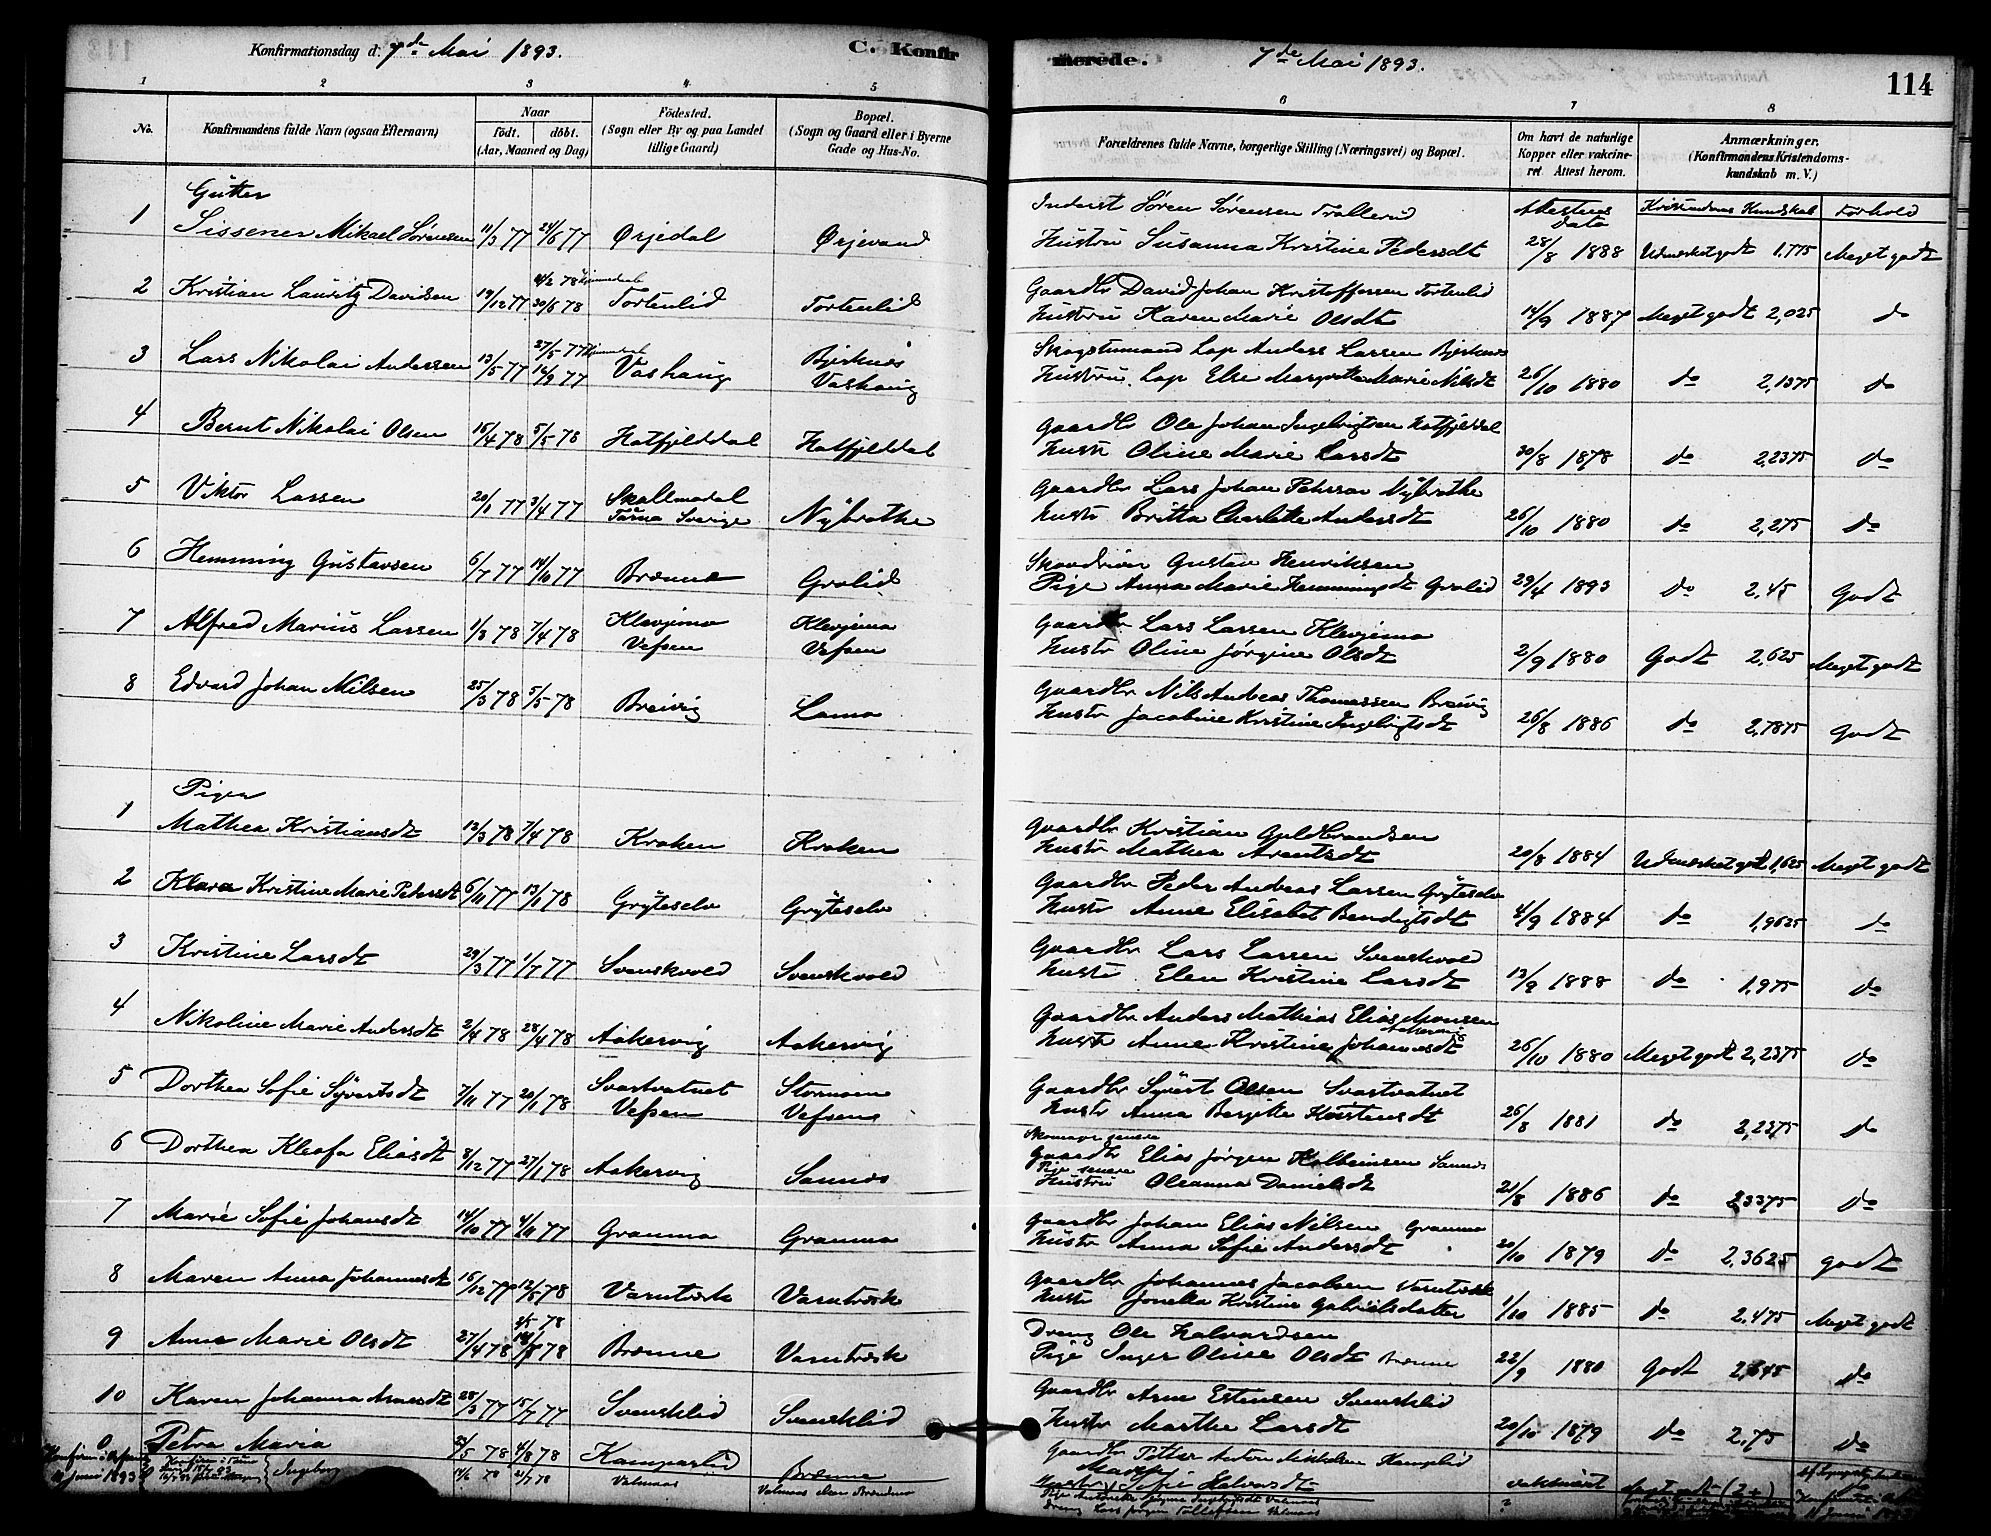 Konfirmationsdag d. 7de Mai 1893.
C. Konfirmerede.
7de Mai 1893.
114
1 2 3 4 5 6 7 8
No.
Konfirmandens fulde Navn (ogsaa Efternavn)
Naar
födt. döbt.
(Aar, Maaned og Dag)
Födested.
(Sogn eller By og paa Landet
tillige Gaard)
Bopæl.
(Sogn og Gaard eller i Byerne
Gade og Hus-No.
Forældrenes fulde Navne, borgerlige Stilling (Næringsvei) og Bopæl.
Om havt de naturlige
Kopper eller vakcine-
ret Attest herom.
Anmærkninger.
(Konfirmandens Kristendoms-
kundskab m. V.)
Gutter
Attestens Dato
Kristendoms Kundskab Forhold
1 Sissener Mikael Sørensen 11/3 77 24/6 77 Ørjedal Ørjevand
Inderst Søren Sørensen Trallerud
Hustru Susanna Kristine Pedersdt 28/8 1888 Udmærket godt 1,775 Meget godt
2 Kristian Lauritz Davidsen 19/12 77 30/6 78 Tortenlid Tortenlid
Gaardbr David Johan Kristoffersen Tortenlid
Hustru Karen Marie Olsdt 14/9 1887 Meget godt 2,025 do
3 Lars Nikolai Andersen 13/5 77 27/5 77 hjemmedøbt 16/9 77 Vashaug Bjerknes Vashaug
Lap Anders Larsen Bjerknes
Hustru Lap Else Margrethe Marie Nilsdt 26/10 1880 do 2,1375 do
4 Bernt Nikolai Olsen 15/4 78 5/5 78 Hatfjelddal Hatfjelddal
Gaardbr Ole Johan Ingebrigtsen Hatfjelddal
Hustr Oline Marie Larsdt 30/8 1878 do 2,2375 do
5 Viktor Larsen 20/1 77 3/4 77 Skallmodal Tärna Sverige Nybrotte
Gaardbr Lars Johan Pehrson Nybrotte
Hustr Britta Charlotte Andersdt 26/10 1880 do 2,275 do
6 Hemming Gustavsen 6/7 77 14/10 77 Brænne Grølid
Gustav Henriksen
Pige Anna Marie Hemmingsdt Grølid 23/4 1893 do 2,45 Godt
7 Alfred Marius Larsen 1/3 78 7/4 78 Klevjemo Vefsen Klevjemo Vefsen
Gaardbr Lars Larsen Klevjemo
Hustr Oline Jørgine Olsdt 2/9 1880 Godt 2,625 Meget godt
8 Edvard Johan Nilsen 25/3 78 5/5 78 Breivig Lamo
Gaardbr Nils Andreas Thomassen Breivig
Hustr Jacobine Kristine Ingebrigtsdt 26/8 1886 do 2,7875 Godt
Piger
1 Mathea Kristiansdt 13/3 78 7/4 78 Kroken Kroken
Gaardbr Kristian Guldbrandsen
Hustr Mathea Arentsdt 20/8 1884 Udmærket godt 1,625 Meget godt
2 Klara Kristine Marie Pedersdt 6/11 77 13/1 78 Gryteselv Gryteselv
Gaardbr Peder Andreas Larsen Gryteselv
Hustr Anne Elisabet Bendigtsdt 4/9 1884 do 1,9625 do
3 Kristine Larsdt 29/3 77 1/7 77 Svenskvold Svenskvold
Gaardbr Lars Larsen Svenskvold
Hustr Elen Kristine Larsdt 13/9 1888 do 1,975 do
4 Nikoline Marie Andersdt 2/4 78 28/4 78 Aakervig Aakervig
Gaardbr Anders Mathias Elias Monsen Aakervig
Hustr Anne Kristine Johannesdt 26/10 1880 Meget godt 2,2375 do
5 Dorthea Sofie Syvertsdt 7/11 77 20/1 78 Svartvatnet Vefsen Stormoen Vefsen
Gaardbr Syvert Olsen Svartvatnet
Hustr Anna Bergitte Kristensdt 26/8 1881 do 2,2375 do
6 Dorthea Kleofa Eliasdt 8/12 77 27/1 78 Aakervig Sannes
Gaardbr Elias Jørgen Kolbeinsen Sannes
Pige senere
Hustru Oleanna Danielsdt 21/8 1886 do 2,3375 do
7 Marie Sofie Johansdt 14/10 77 4/11 77 Granmo Granmo
Gaardbr Johan Elias Nilsen Granmo
Hustr Anna Sofie Andersdt 20/10 1879 do 2,3625 godt
8 Maren Anna Johannesdt 16/12 77 12/5 78 Varntræsk Varntræsk
Gaardbr Johannes Jacobsen Varntræsk
Hustr Jonetta Kristine Gabrielsdatter 1/10 1885 do 2,475 Meget godt
9 Anne Marie Olsdt 27/4 78 Brænne Varntræsk
Dreng Ole Halvardsen
Pige Inger Oline Olsdt Brænne 22/9 1880 Godt 2,645 do
10 Karen Johanna Arnesdt 28/3 77 15/7 77 Svensklid Svensklid
Gaardbr Arne Estensen Svensklid
Hustr Marthe Larsdt 20/10 1879 do 2,75 do
Petra Maria 78 4/8 78 Kampeslid Brænne
Gaardbr Petter Anton Mikkelsen Kampslid
Sofie Halvorsdt vakcinert Meget godt (2+)
11 Juni 1893
Ingeborg Valmaas
Lars Jørgen Tollefsen Valmaas